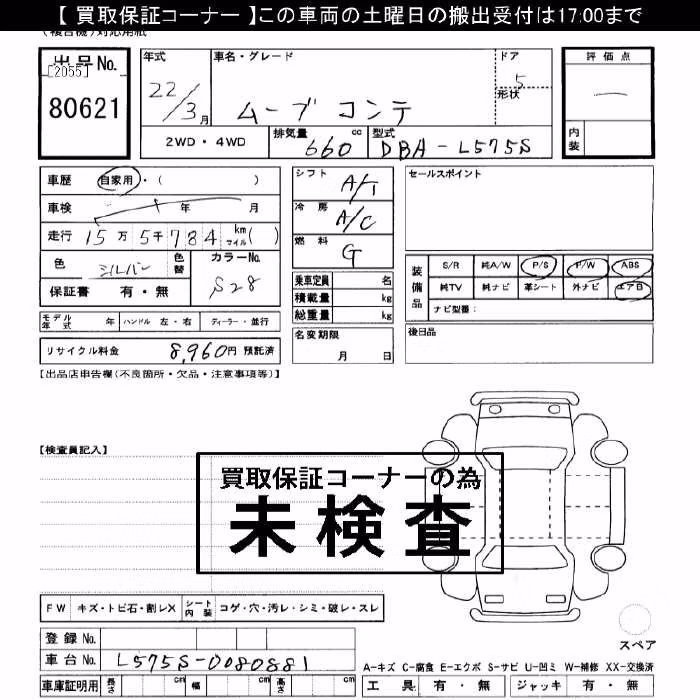 【 買取保証コーナー 】この車両の土曜日の搬出受付は17:00まで
(複合機)対応用紙
出品No.
[2055]
80621
年式
22/3月
車名・グレード
ムーブ コンテ
ドア
5
形状
評価点
―
内装
2WD・4WD
排気量
660 cc
型式
DBA-L575S
車歴 自家用・( )
車検 年 月
走行 15万5千784 km マイル( )
色 シルバー 色替
カラーNo.
S28
保証書 有・無
シフト A/T
冷房 A/C
燃料 G
乗車定員 名
積載量 kg
総重量 kg
セールスポイント
装備品
S/R 純A/W P/S P/W ABS
純TV 純ナビ 革シート 外ナビ エアB
ナビ型番:
モデル年式 年 ハンドル 左・右 ディーラー・並行
名変期限
月 日
後日品
リサイクル料金 8,960円 預託済
【出品店申告欄(不良箇所・欠品・注意事項等)】
【検査員記入】
買取保証コーナーの為
未検査
FW キズ・トビ石・割レX シート内装 コゲ・穴・汚レ・シミ・破レ・スレ
スペア
登録No.
車台No. L575S-0080881
A-キズ C-腐食 E-エクボ S-サビ U-凹ミ W-補修 XX-交換済
車庫証明用 長さ cm 幅 cm 高さ cm
工具 有・無 ジャッキ 有・無